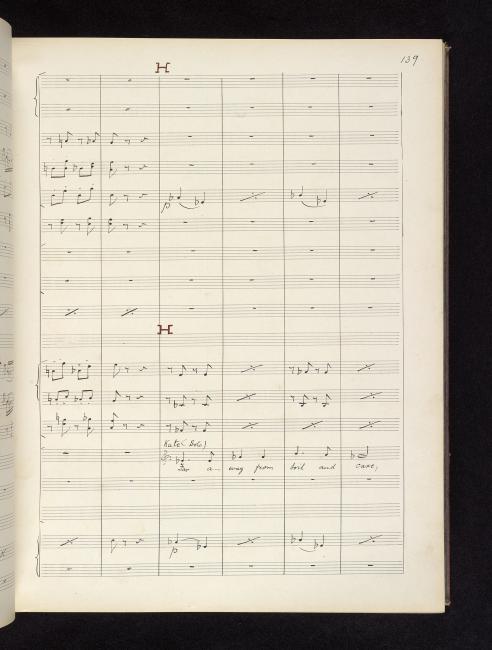 139
H
p
H
Kate (Solo)
Far a - way from toil and care,
p